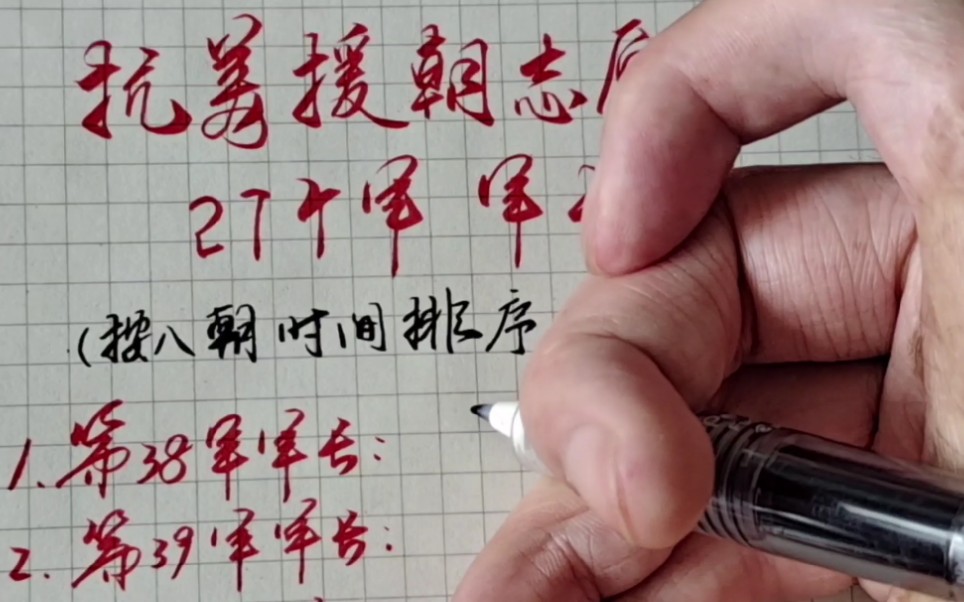 抗美援朝志
27个军 军
(按入朝时间排序
1. 第38军军长:
2. 第39军军长: